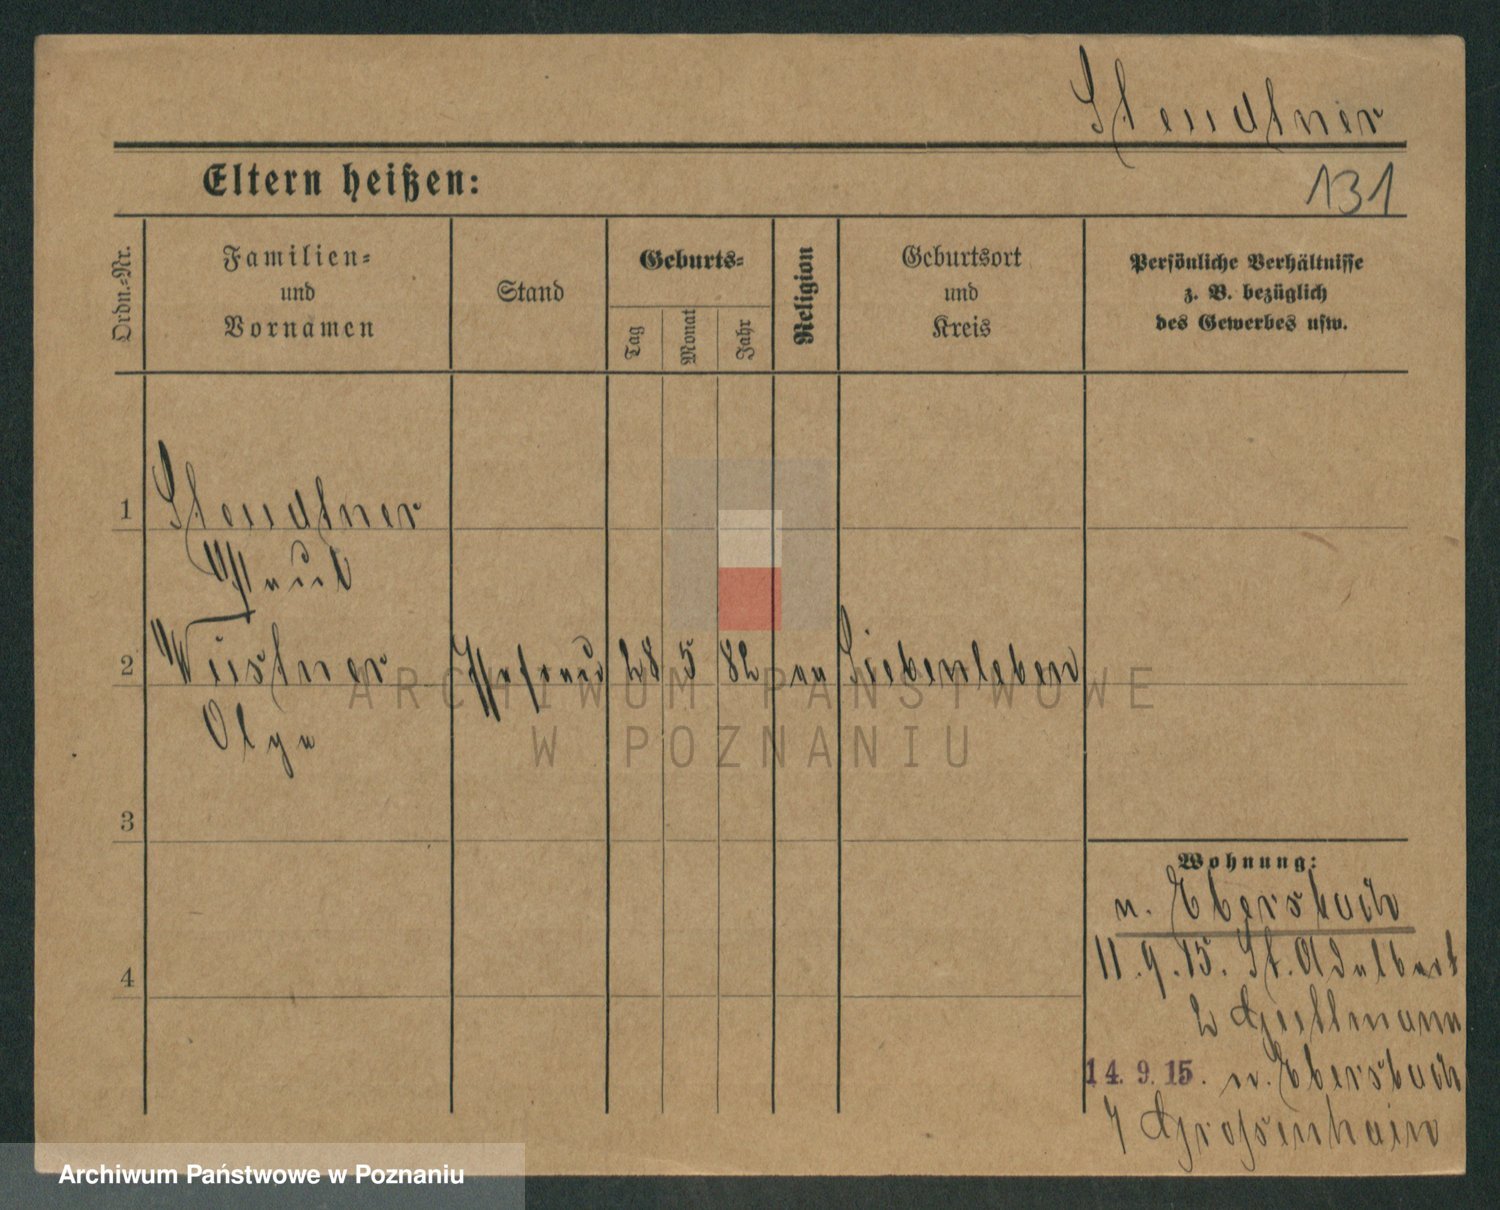 Stendtner
131
Eltern heißen:
Ordn.-Nr.
Familien-
und
Vornamen
Stand
Geburts-
Tag
Monat
Jahr
Religion
Geburtsort
und
Kreis
Persönliche Verhältnisse
z. B. bezüglich
des Gewerbes usw.
1 Stendtner
Paul
2 Wüstner 28 5 82 Siebenleben
Olga
3
4
Wohnung:
n. Ebersbach
11.9.15. St. Adalbert
2 Guttmann
14.9.15. n. Ebersbach
Großenhain
ARCHIWUM PAŃSTWOWE
W POZNANIU
Archiwum Państwowe w Poznaniu